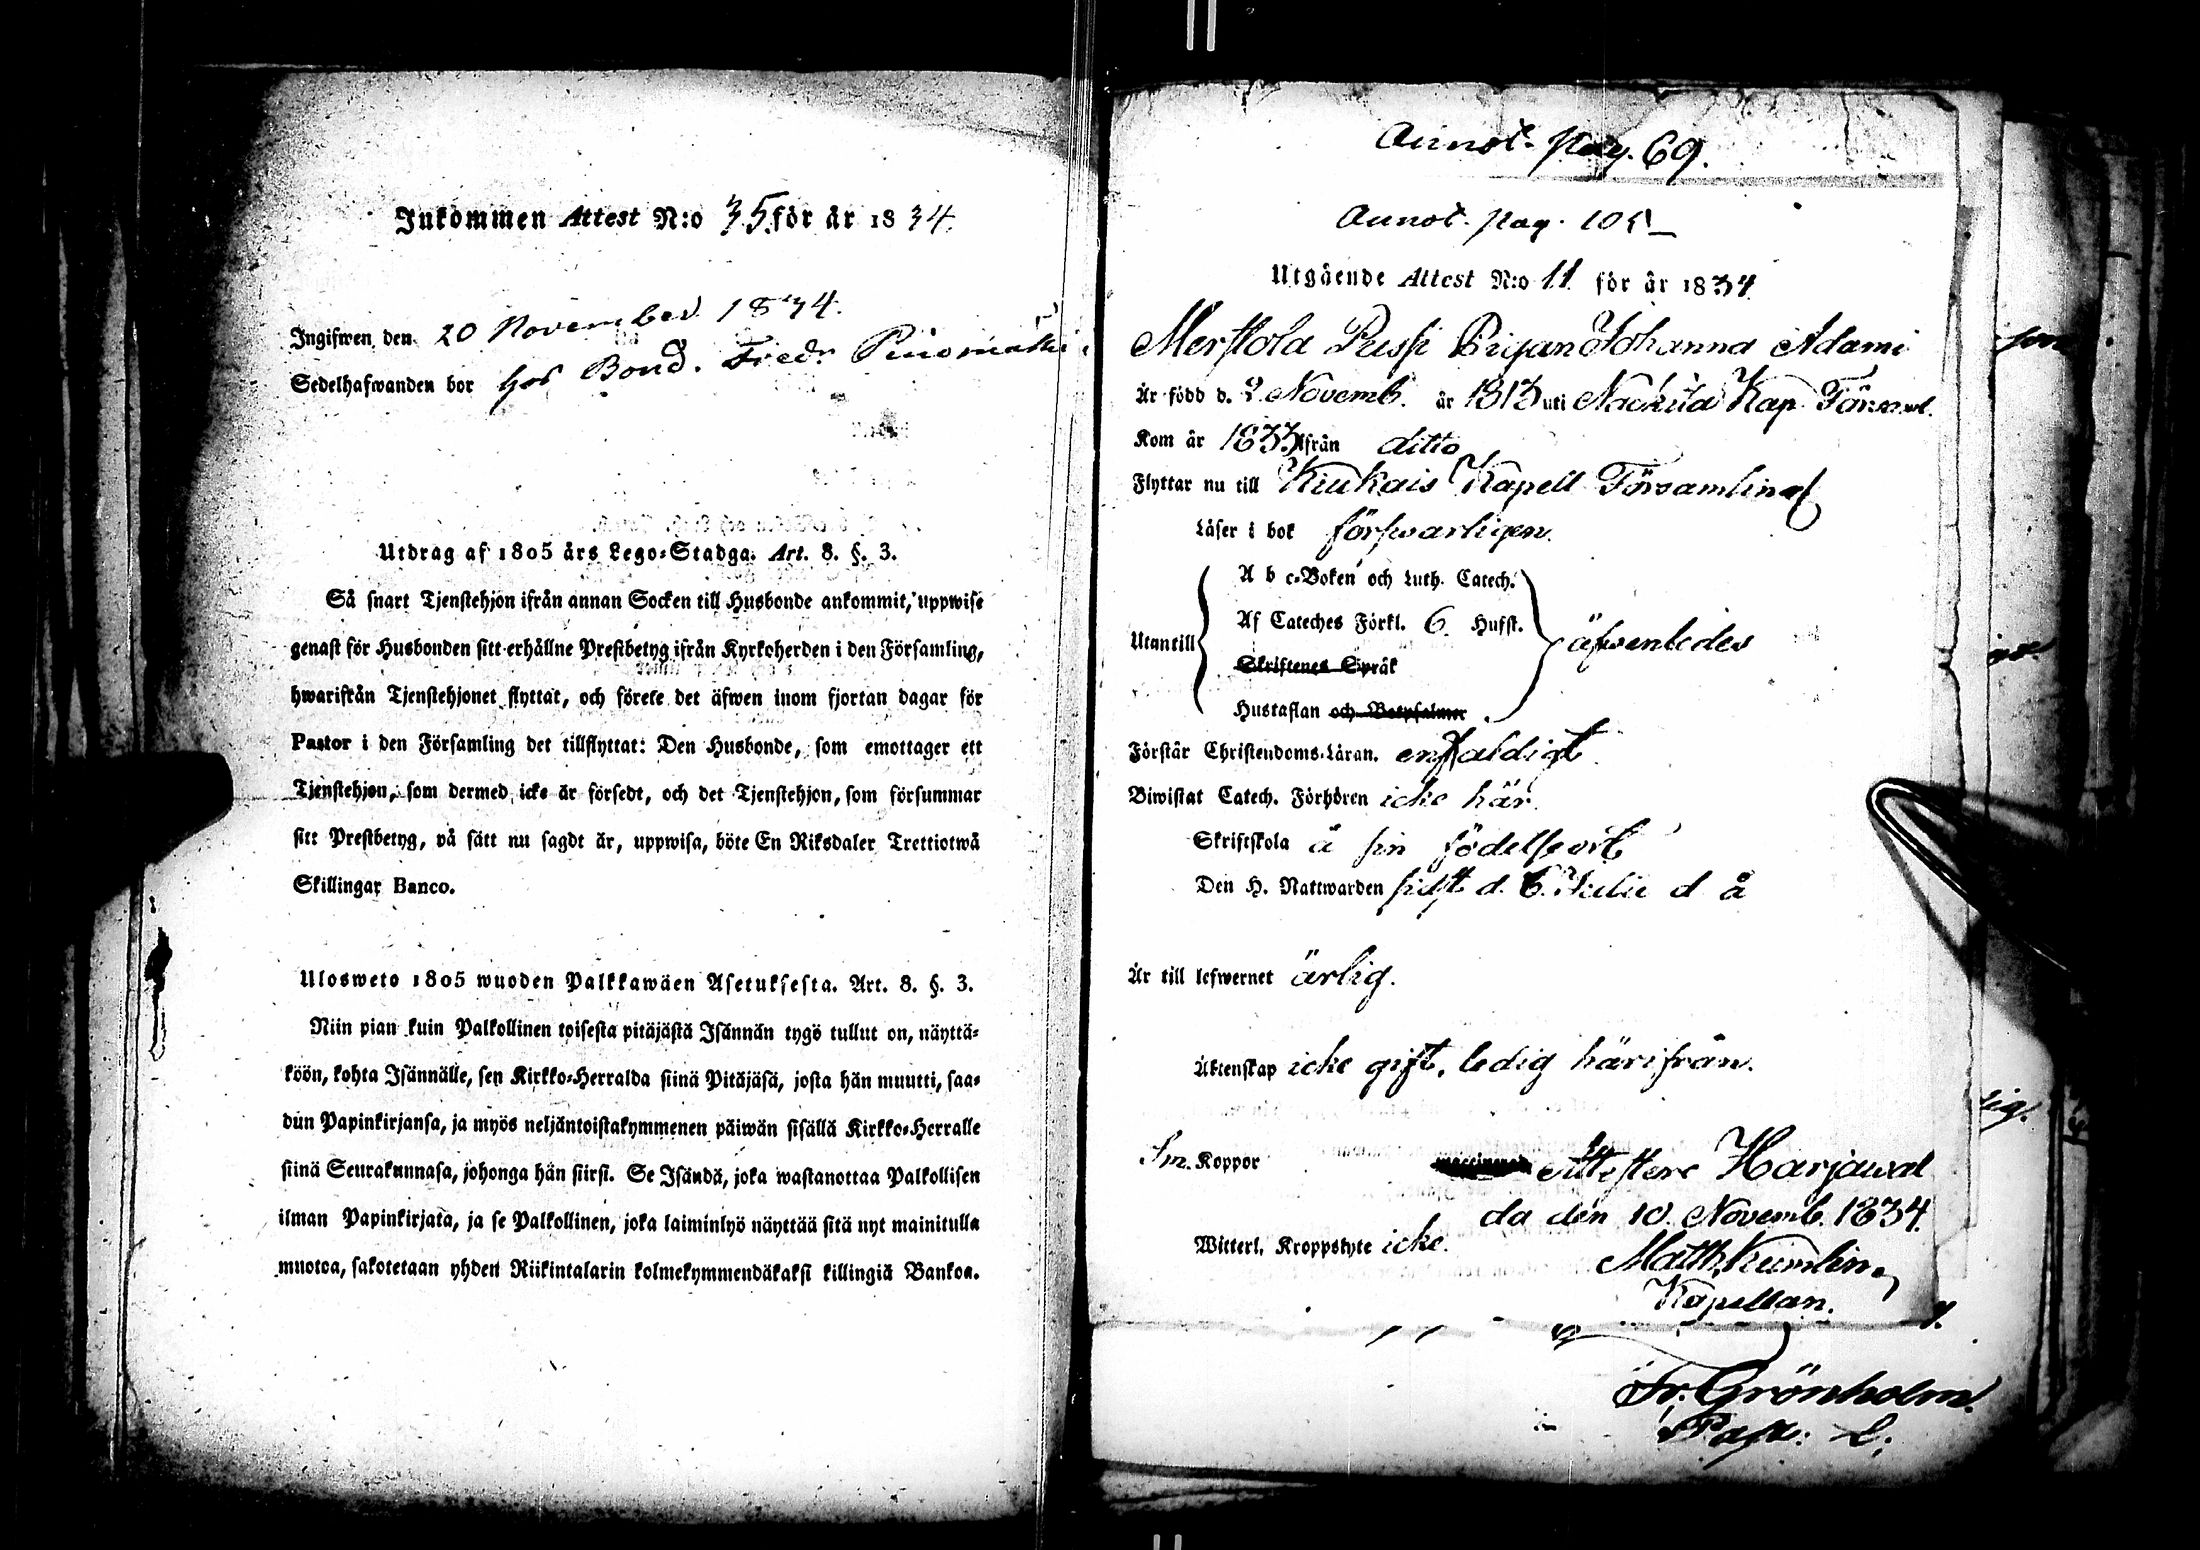 Inkommen Attest N:o 35 för år 1834.
Ingifwen den 20 November 1834.
Sedelhafwanden bor hos Bond. Fredr Pinomäki
Utdrag af 1805 års Lego-Stadga. Art. 8. §. 3.
Så snart Tjenstehjon ifrån annan Socken till Husbonde ankommit, uppwise
genast för Husbonden sitt erhållne Prestbetyg ifrån Kyrkoherden i den Församling,
hwarifrån Tjenstehjonet flyttat, och förete det äfwen inom fjortan dagar för
Pastor i den Församling det tillflyttat: Den Husbonde, som emottager ett
Tjenstehjon, som dermed icke är försedt, och det Tjenstehjon, som försummar
sitt Prestbetyg, på sätt nu sagdt är, uppwisa, böte En Riksdaler Trettiotwå
Skillingar Banco.
Ulosweto 1805 wuoden Palkkawäen Asetuksesta. Art. 8. §. 3.
Niin pian kuin Palkollinen toisesta pitäjästä Isännän tygö tullut on, näyttä-
köön, kohta Isännälle, sen Kirkko-Herralda siinä Pitäjäsä, josta hän muutti, saa-
dun Papinkirjansa, ja myös neljäntoistakymmenen päiwän sisällä Kirkko-Herralle
siinä Seurakunnasa, johonga hän siirsi. Se Isändä, joka wastanottaa Palkollisen
ilman Papinkirjata, ja se Palkollinen, joka laiminlyö näyttää sitä nyt mainitulla
muotoa, sakotetaan yhden Riikintalarin kolmekymmendäkaksi killingiä Bankoa.
Annot. pag. 69.
Annot. pag. 105
Utgående Attest N:o 11 för år 1834
Merstola Pussi Pigan Johanna Adami
Är född d. 2 Novemb. år 1813 uti Nackila Kap. Församl.
Kom år 1833 ifrån ditto
Flyttar nu till Kiukais Kapell Församling
Läser i bok försvarligen.
A b c-Boken och Luth. Catech.
Af Cateches Förkl. 6. Hufst.
Utantill äfwenledes
Skriftenes Språk
Hustaflan och Botpsalmer
Förstår Christendoms-Läran. enfaldigt
Biwistat Catech. Förhören icke här
Skriftskola å sin födelseort
Den H. Nattwarden sidst d. 6. Julii d å
Är till lefwernet ärlig.
Äktenskap icke gift, ledig härifrån.
Sm. Koppor
Attestere Harjawal
da den 10. Novemb. 1834.
Witterl. Kroppslyte icke.
Matth. Kumlin
Kapellan.
Fr. Grönholm.
Past: L: